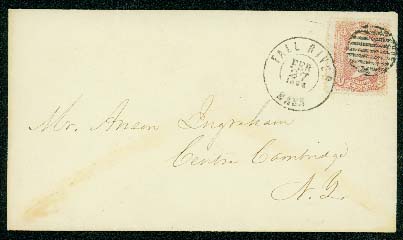 FALL RIVER
FEB
27
MASS
Mr. Anson Ingraham
Centre Cambridge
N. Y.